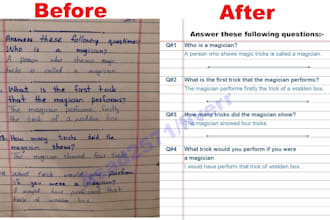 Before
After
Answers these following questions
Who is a magician?
A person who shows magic
tricks is called a magician
What is the first trick
that the magician performs?
The magician performs firstly
the trick of a wodden box.
How many tricks did the
magician show?
The magician showed four tricks
What trick would you perform
if you were a magician?
I would have performed that
trick of wodden box.
Answer these following questions:-
Q#1 Who is a magician?
A person who shows magic tricks is called a magician.
Q#2 What is the first trick that the magician performs?
The magician performs firstly the trick of a wodden box.
Q#3 How many tricks did the magician show?
The magician showed four tricks.
Q#4 What trick would you perform if you were
a magician
I would have perform that trick of wodden box.